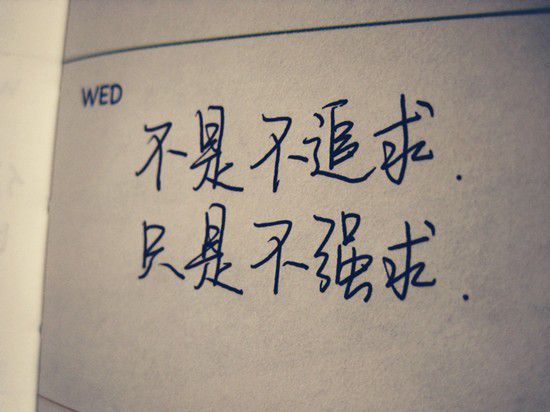 WED
不是不追求.
只是不强求.